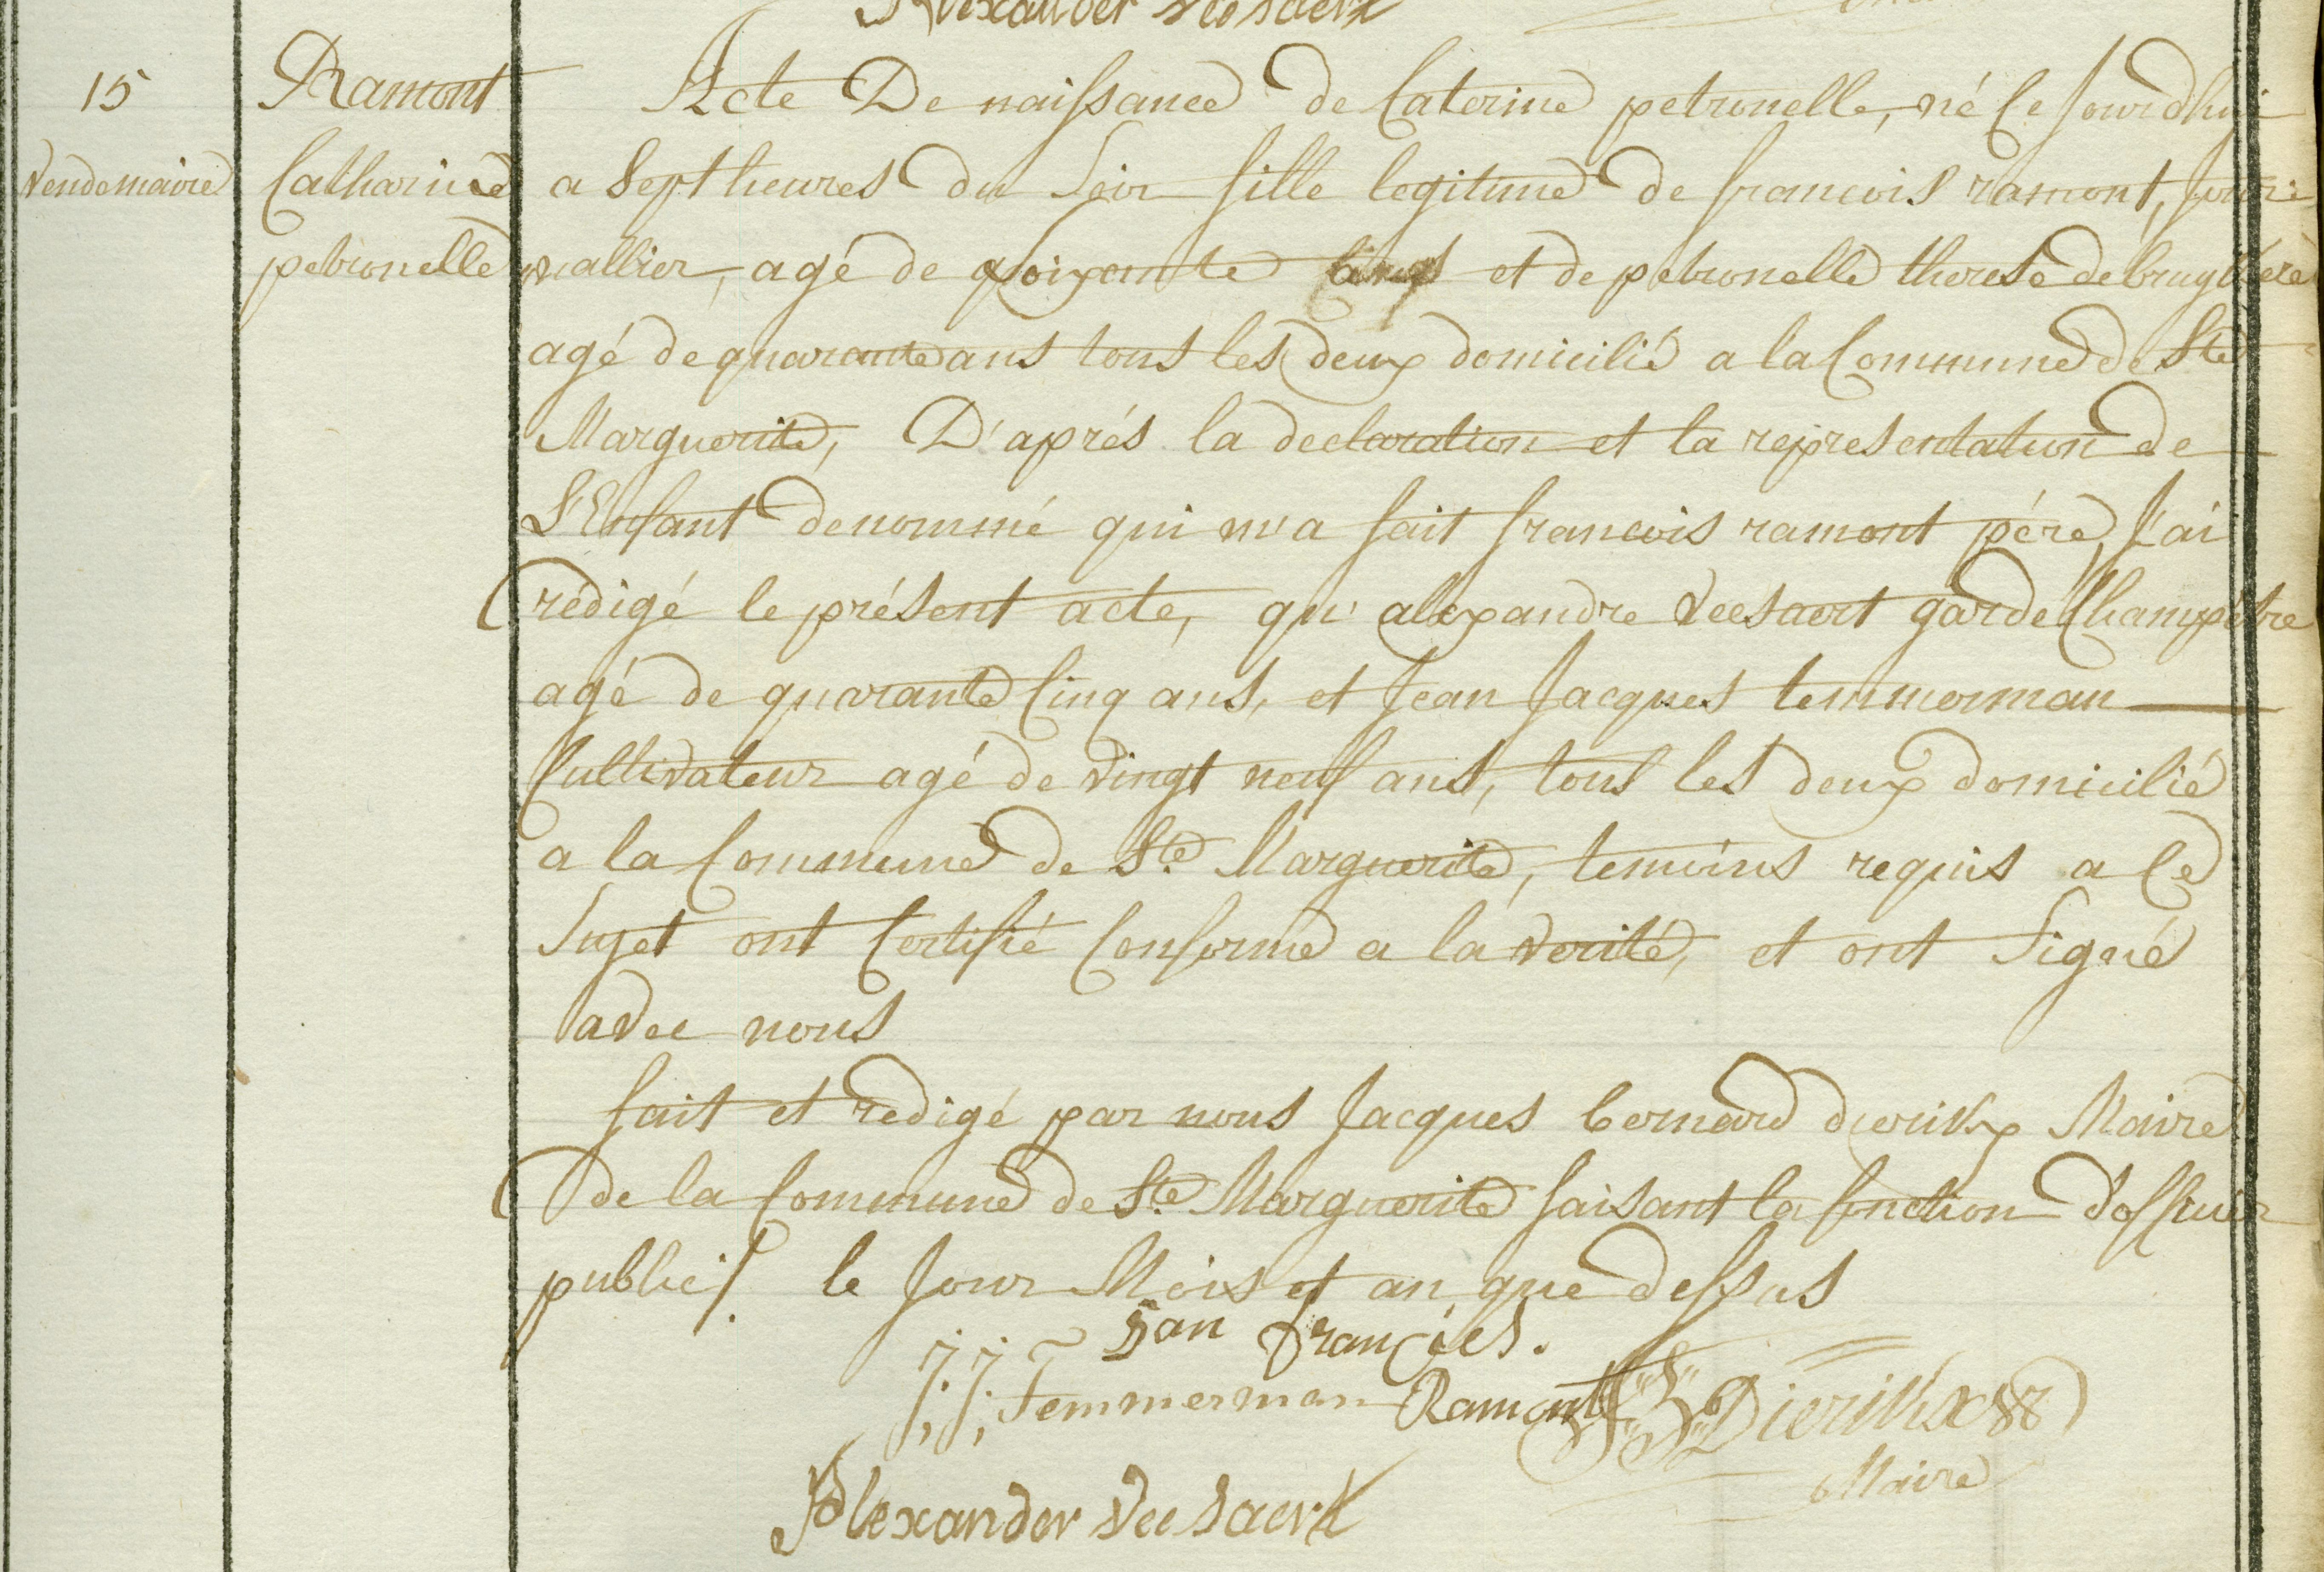 Alexander Veesaert
15
Vendemaire
Ramont
Catharine
petronelle
Acte De naissance de Caterine petronelle, né Ce Jourdhui
a Sept heures du Soir fille legitime de francois ramont, Jour
nallier, agé de Soixante et de petronelle therese debruyckere
agé de quarante ans tous les deux domicilié a la Commune de Ste
Marguerite, D'aprés la declaration et la representation de
L'Enfant denommé qui m'a fait francois ramont pére, J'ai
rédigé le présent acte, qu'alexandre Veesaert garde Champetre
agé de quarante Cinq ans, et Jean Jacques temmerman
Cultivateur agé de Vingt neuf ans, tous les deux domicilié
a la Commune de Ste Marguerite, temoins requis a Ce
Sujet ont Certifié Conforme a la Verité, et ont Signé
avec nous
fait et redigé par nous Jacques bernard dierikx Maire
de la Commune de Ste Marguerite faisant la fonction d'officier
public /. le Jour Mois et an que dessus
Jan Françies.
J: J: Temmerman Ramont Dierikx
Maire
Alexander Veesaert